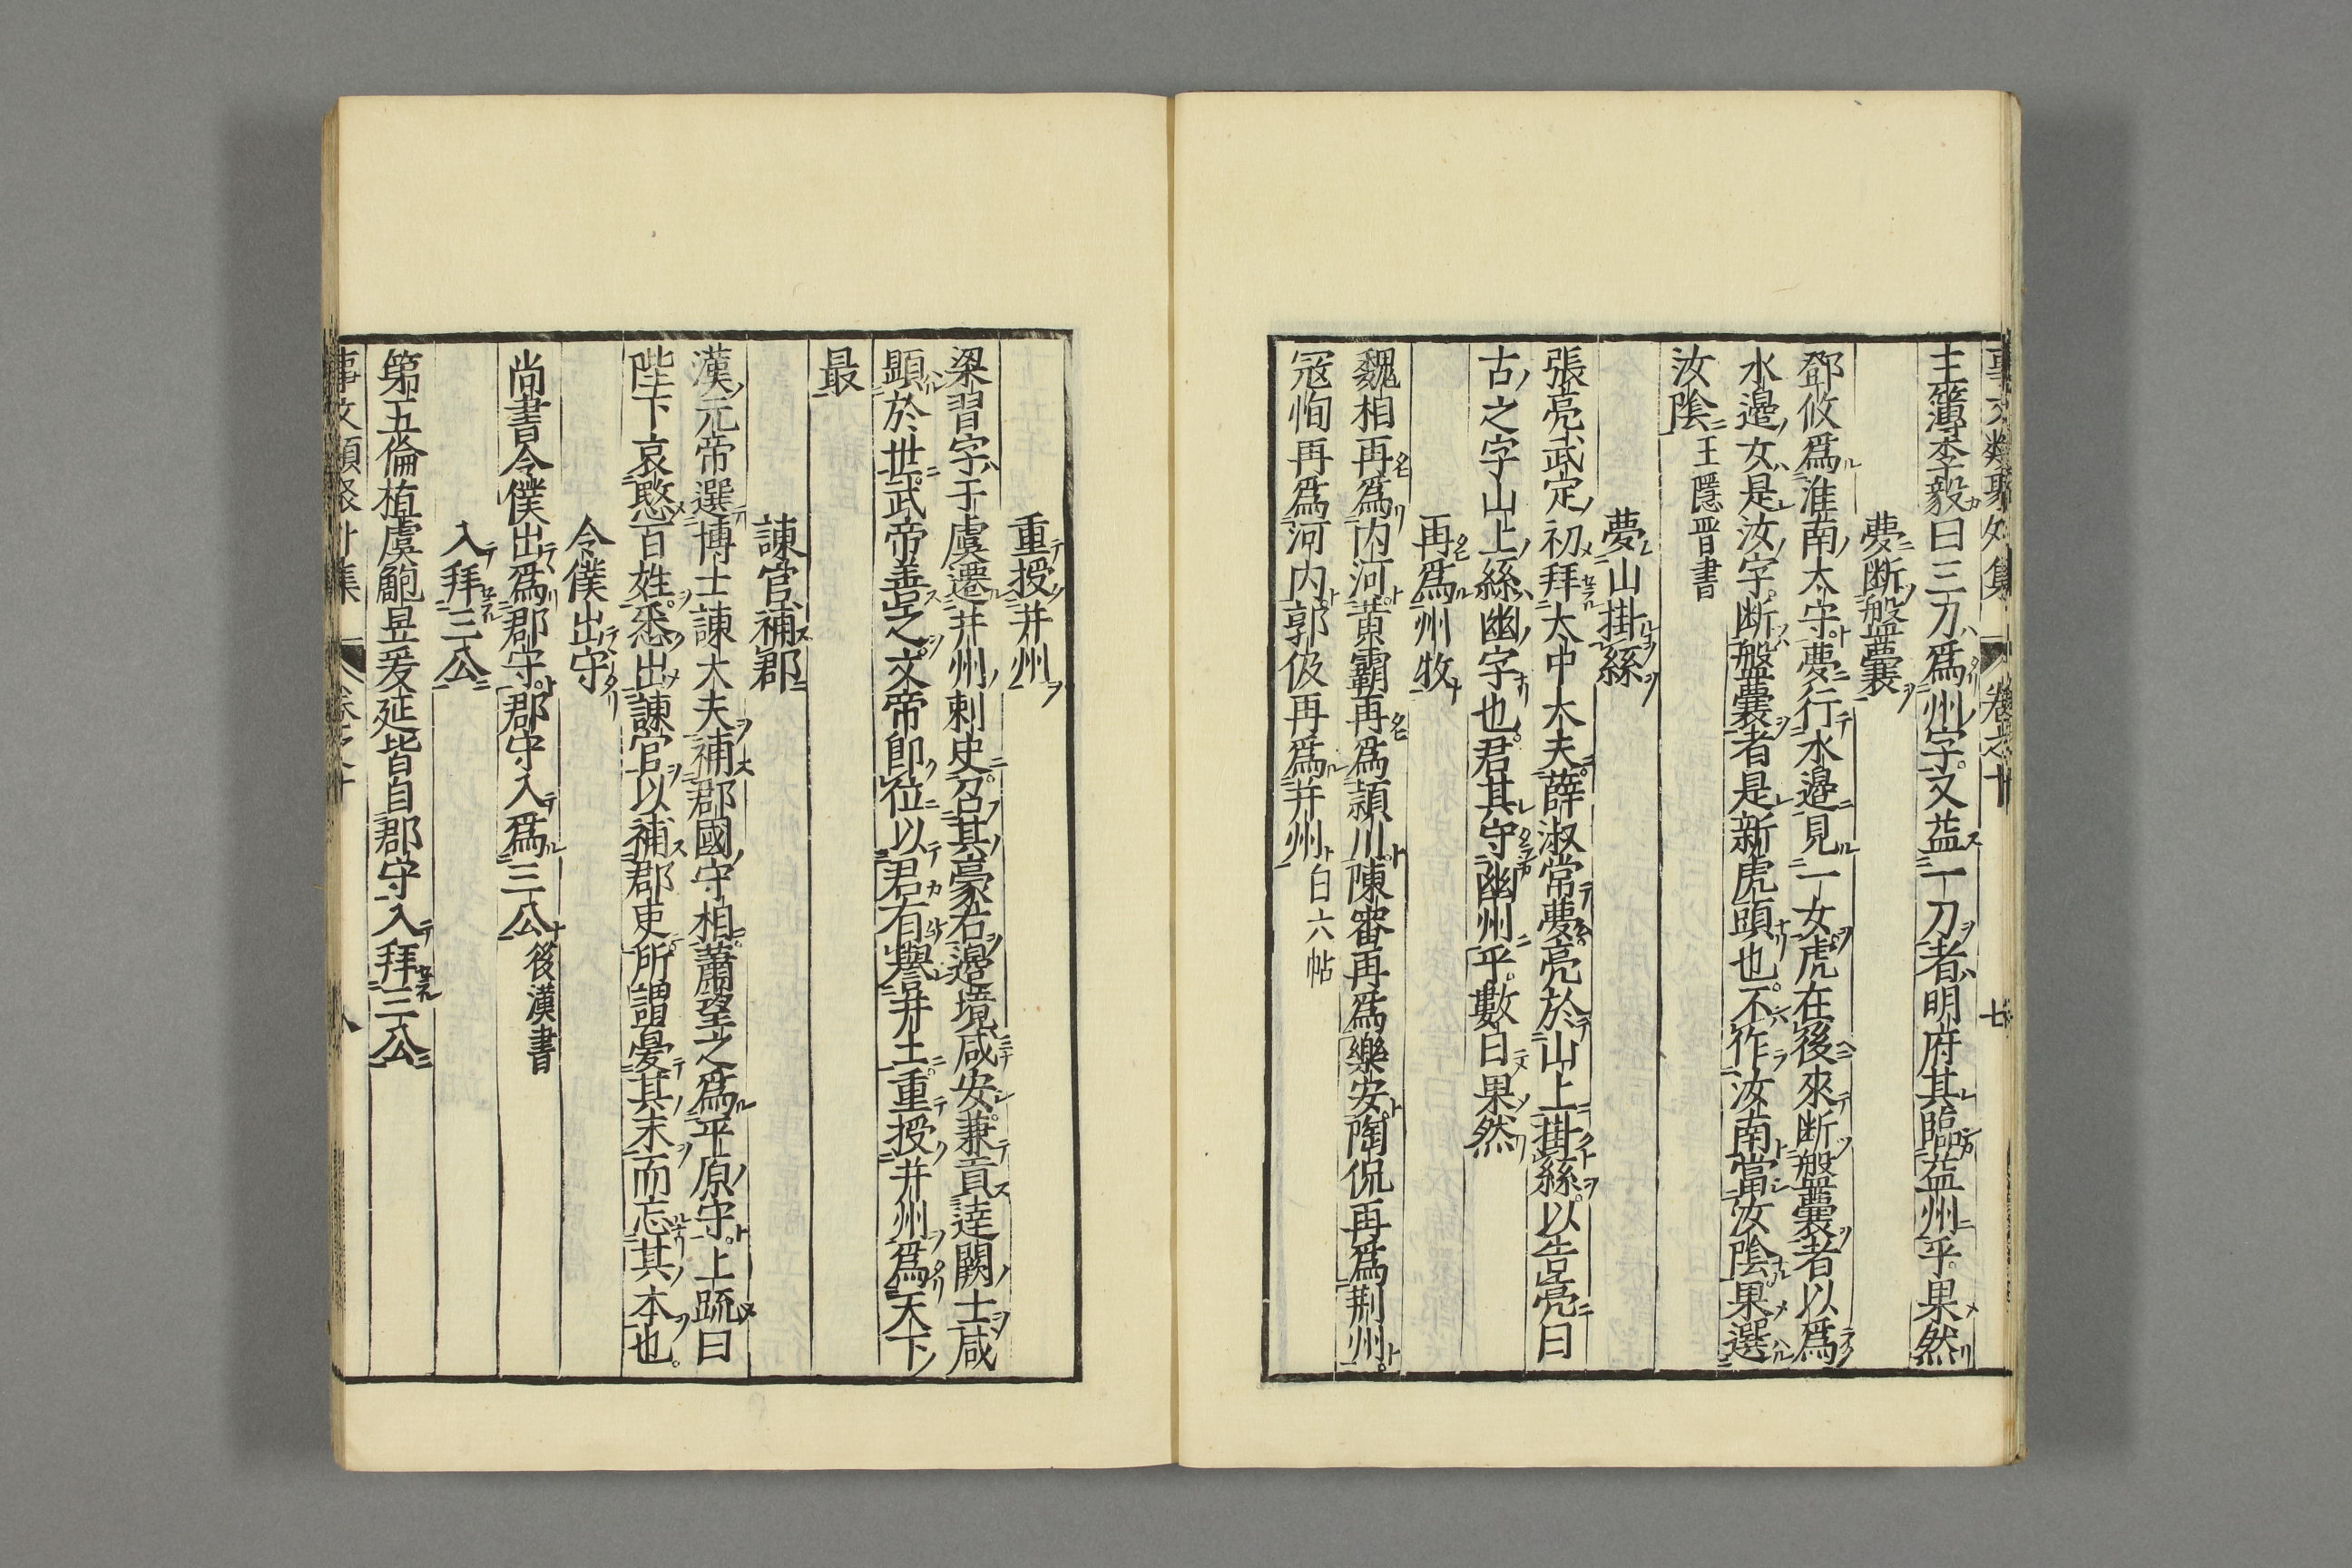 事文類聚外集 卷之十 七
主簿李毅曰三刀爲州字又益一刀者明府其臨益州乎果然
夢斷盤囊
鄧攸爲淮南太守夢行水邊見一女虎在後來断盤囊者以爲
水邊女是汝字断盤囊者是新虎頭也不作汝南當汝陰果選
汝陰 王隱晋書
夢山掛絲
張亮武定初拜大中大夫薛淑常夢亮於山上掛絲以告亮曰
古之字山上絲幽字也君其守幽州乎數日果然
再爲州牧
魏相再爲内河黄霸再爲潁川陳審再爲樂安陶侃再爲荆州
冦恂再爲河内郭伋再爲并州 白六帖
重授并州
梁習字于虞遷并州刺史召其豪右邉境咸安兼貢達闕士咸
顕於世武帝善之文帝即位以君有譽并土重授并州爲天下
最
諫官補郡
漢元帝選博士諫大夫補郡國守相蕭望之爲平原守上疏曰
陛下哀愍百姓悉出諫官以補郡吏所謂憂其末而忘其本也
令僕出守
尚書令僕出爲郡守郡守入爲三公 後漢書
入拜三公
第五倫植虞鮑昱爰延皆自郡守入拜三公
事文類聚外集 卷之十 八